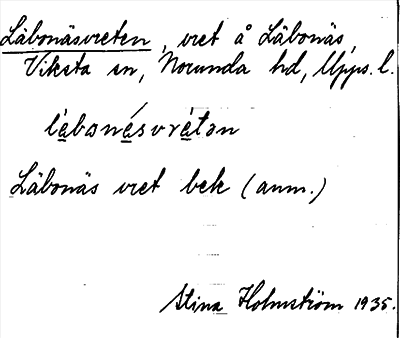 Läbonäsvreten, vret å Läbonäs,
Viksta sn, Norunda hd, Upps. l.
lèbonésvrétən
Läbonäs vret bek (anm.)
Stina Holmström 1935.